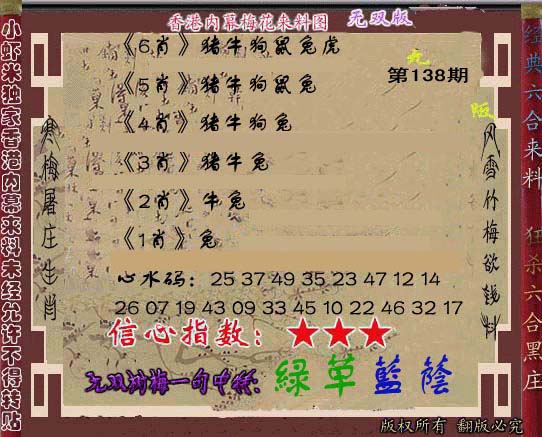 香港内幕梅花来料图 无双版
小虾米独家香港内幕来料未经允许不得转贴
经典六合来料 狂杀六合黑庄
第138期
寒梅屠庄生肖
风雪竹梅欲钱料
《6肖》猪牛狗鼠兔虎
《5肖》猪牛狗鼠兔
《4肖》猪牛狗兔
《3肖》猪牛兔
《2肖》牛兔
《1肖》兔
心水码：25 37 49 35 23 47 12 14
26 07 19 43 09 33 45 10 22 46 32 17
信心指数：★★★
一句中特：綠草藍蔭
版权所有 翻版必究